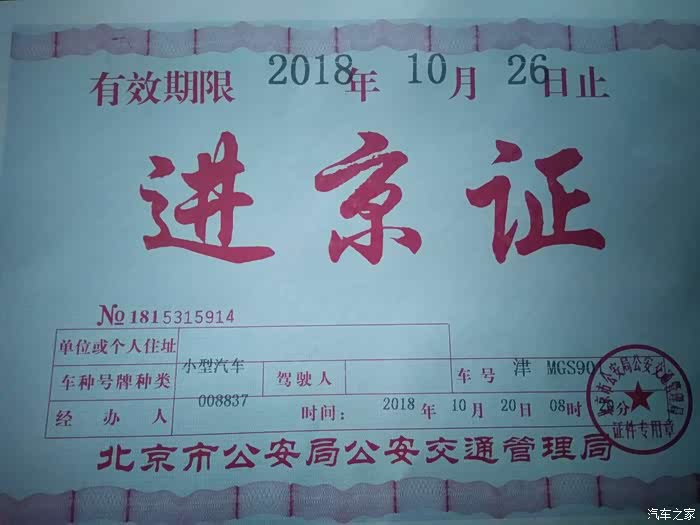 有效期限 2018年 10月 26日止
进京证
№1815315914
单位或个人住址
车种号牌种类 小型汽车 驾驶人 车号 津 MGS90
经办人 008837 时间: 2018年 10月 20日 08时 分
北京市公安局公安交通管理局
北京市公安局公安交通管理局
证件专用章
汽车之家